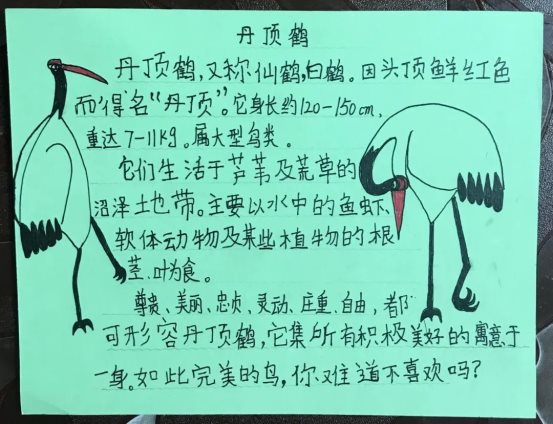 丹顶鹤
丹顶鹤,又称仙鹤,白鹤。因头顶鲜红色
而得名"丹顶"。它身长约120-150cm,
重达7-11kg。属大型鸟类。
它们生活于芦苇及荒草的
沼泽土地带。主要以水中的鱼虾、
软体动物及某些植物的根
茎、叶为食。
尊贵、美丽、忠贞、灵动、庄重、自由,都
可形容丹顶鹤,它集所有积极美好的寓意于
一身。如此完美的鸟,你难道不喜欢吗?